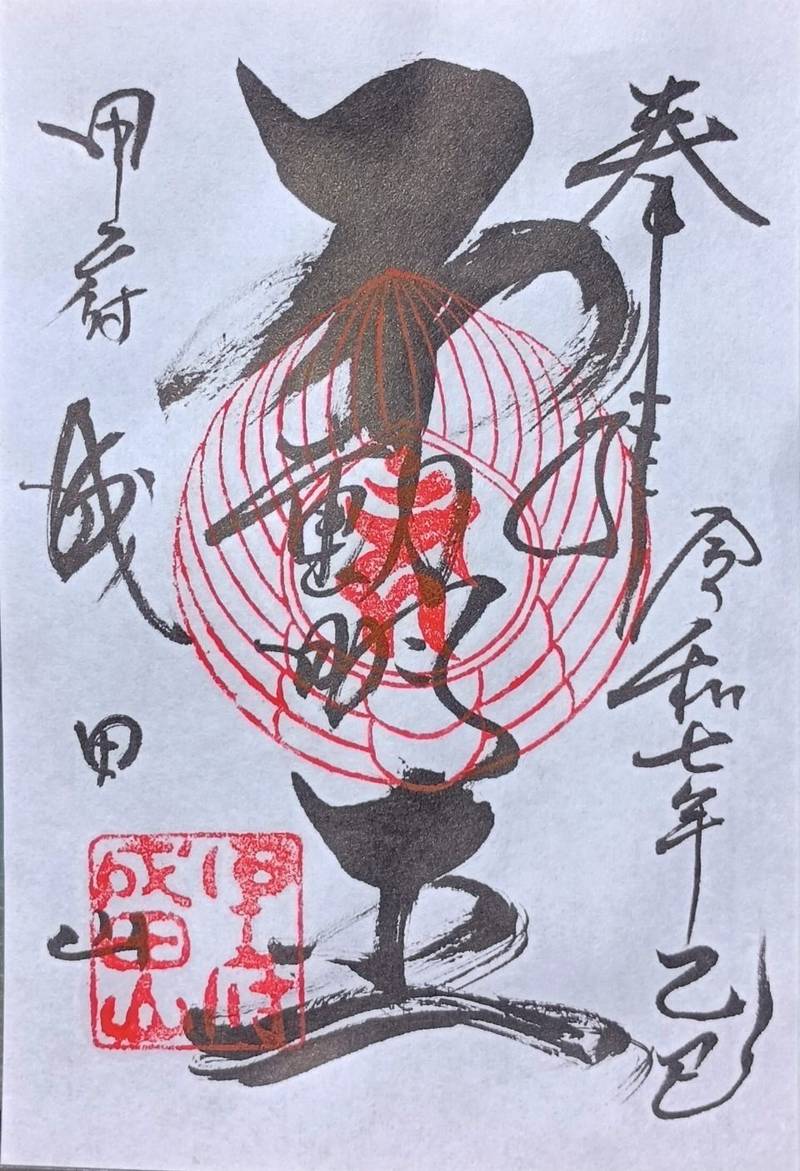 奉拝
令和七年乙巳
不動明王
甲府
成田山
成田山